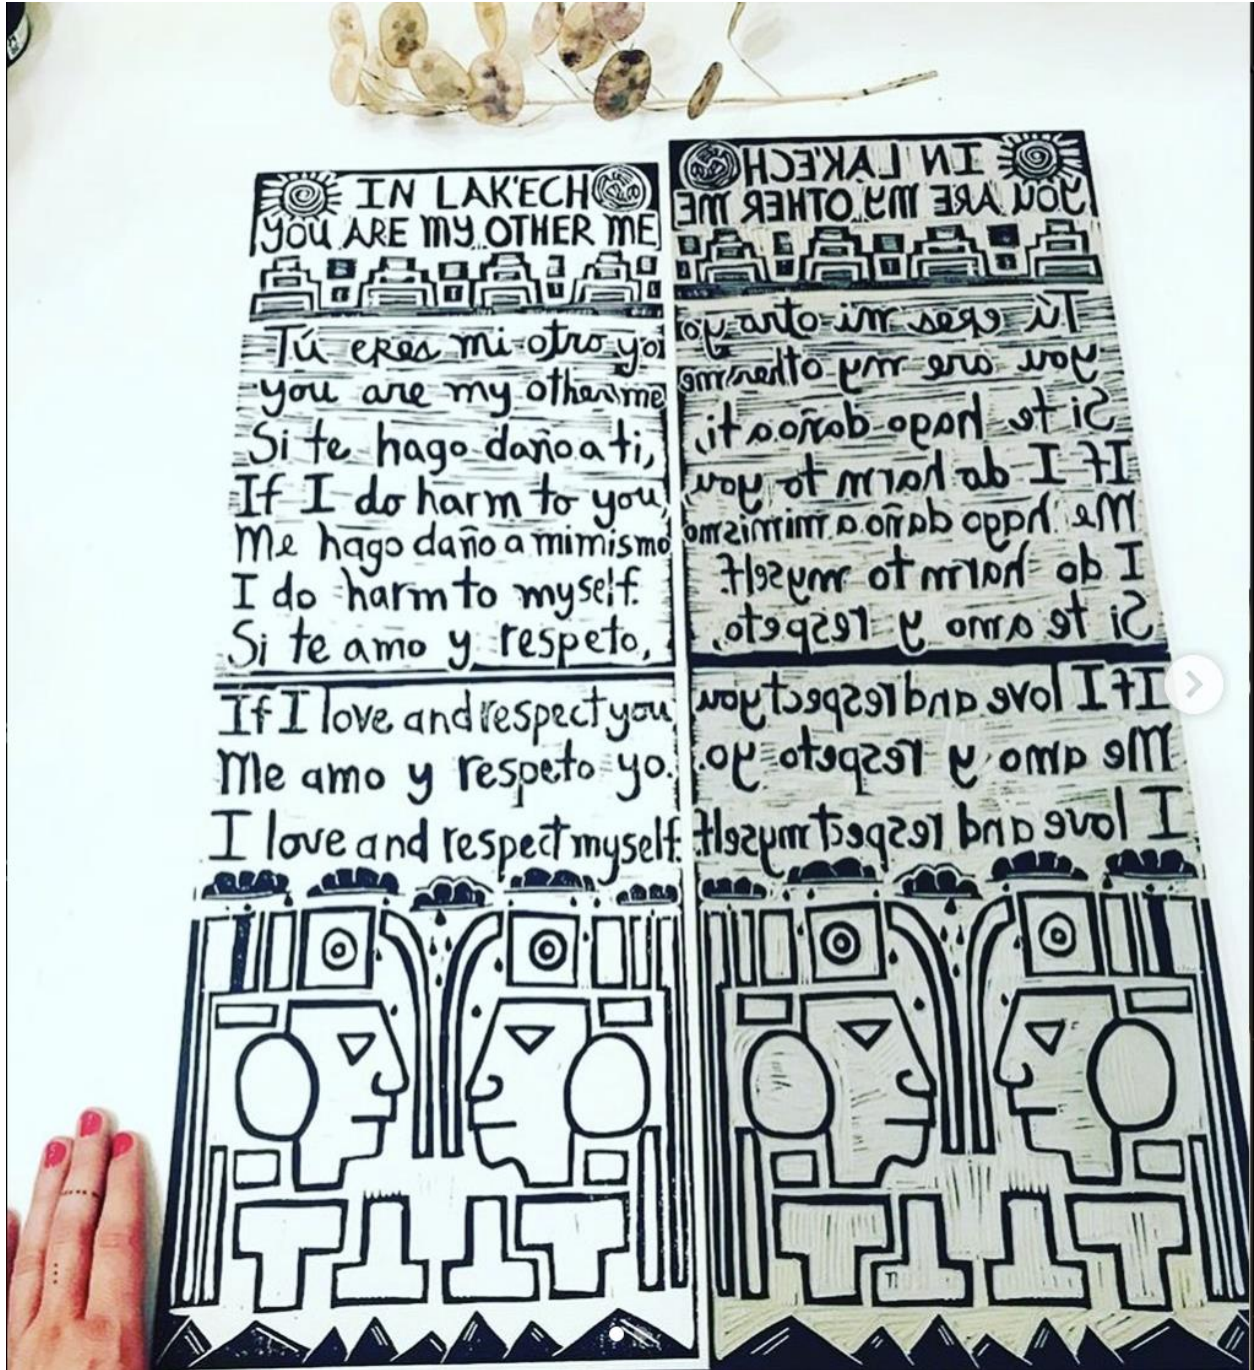 IN LAK'ECH
YOU ARE MY OTHER ME
Tú eres mi otro yo
you are my other me
Si te hago daño a ti,
If I do harm to you,
Me hago daño a mi mismo
I do harm to myself.
Si te amo y respeto,
If I love and respect you
Me amo y respeto yo.
I love and respect myself.
IN LAK'ECH
YOU ARE MY OTHER ME
Tú eres mi otro yo
you are my other me
Si te hago daño a ti,
If I do harm to you,
Me hago daño a mi mismo
I do harm to myself.
Si te amo y respeto,
If I love and respect you
Me amo y respeto yo.
I love and respect myself.